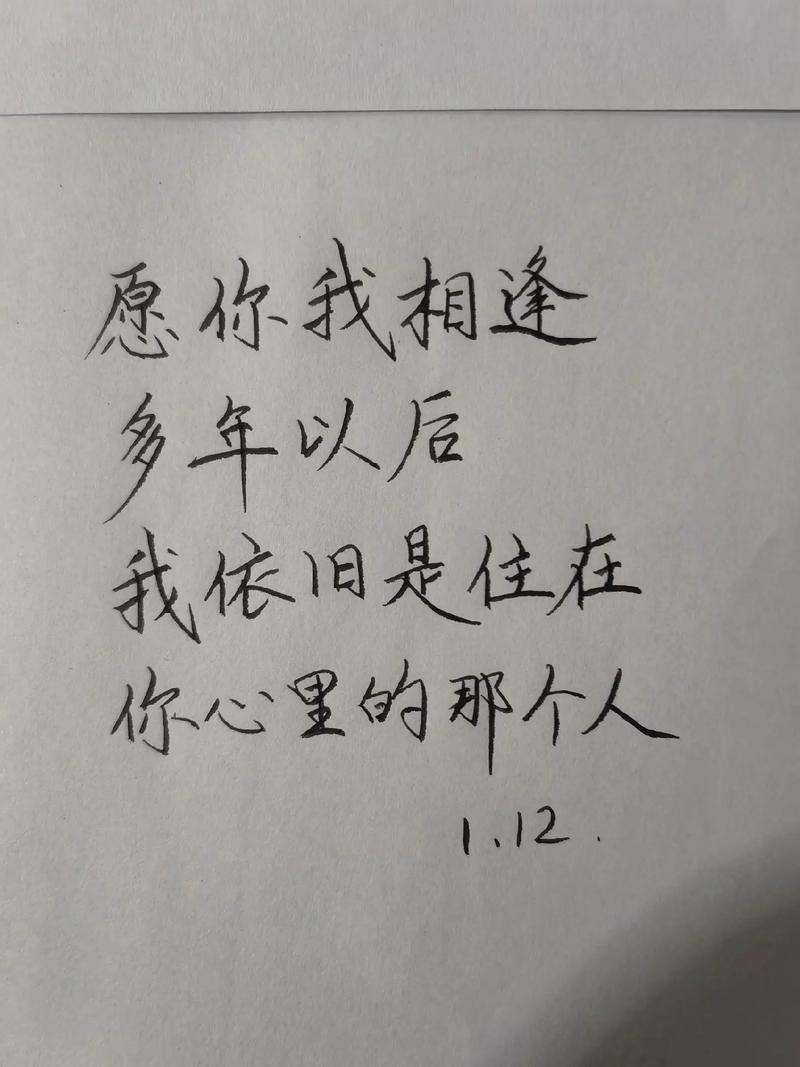 愿你我相逢
多年以后
我依旧是住在
你心里的那个人
1.12.